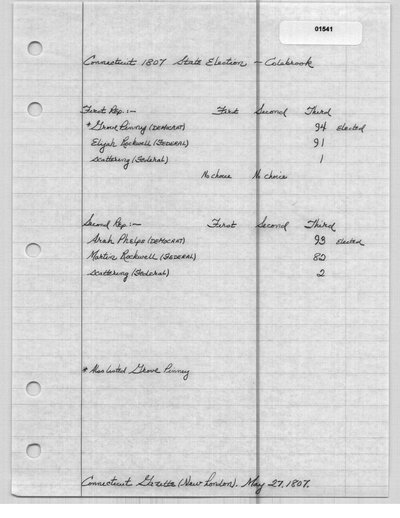 01541
Connecticut 1807 State Election - Colebrook
First Rep.:- First Second Third
* Grove Pinney (DEMOCRAT) 94 elected
Elijah Rockwell (FEDERAL) 91
scattering (Federal) 1
No choice No choice
Second Rep:- First Second Third
Arah Phelps (DEMOCRAT) 93 elected
Martin Rockwell (FEDERAL) 82
scattering (Federal) 2
* Also listed Grove Penney
Connecticut Gazette (New London). May 27, 1807.